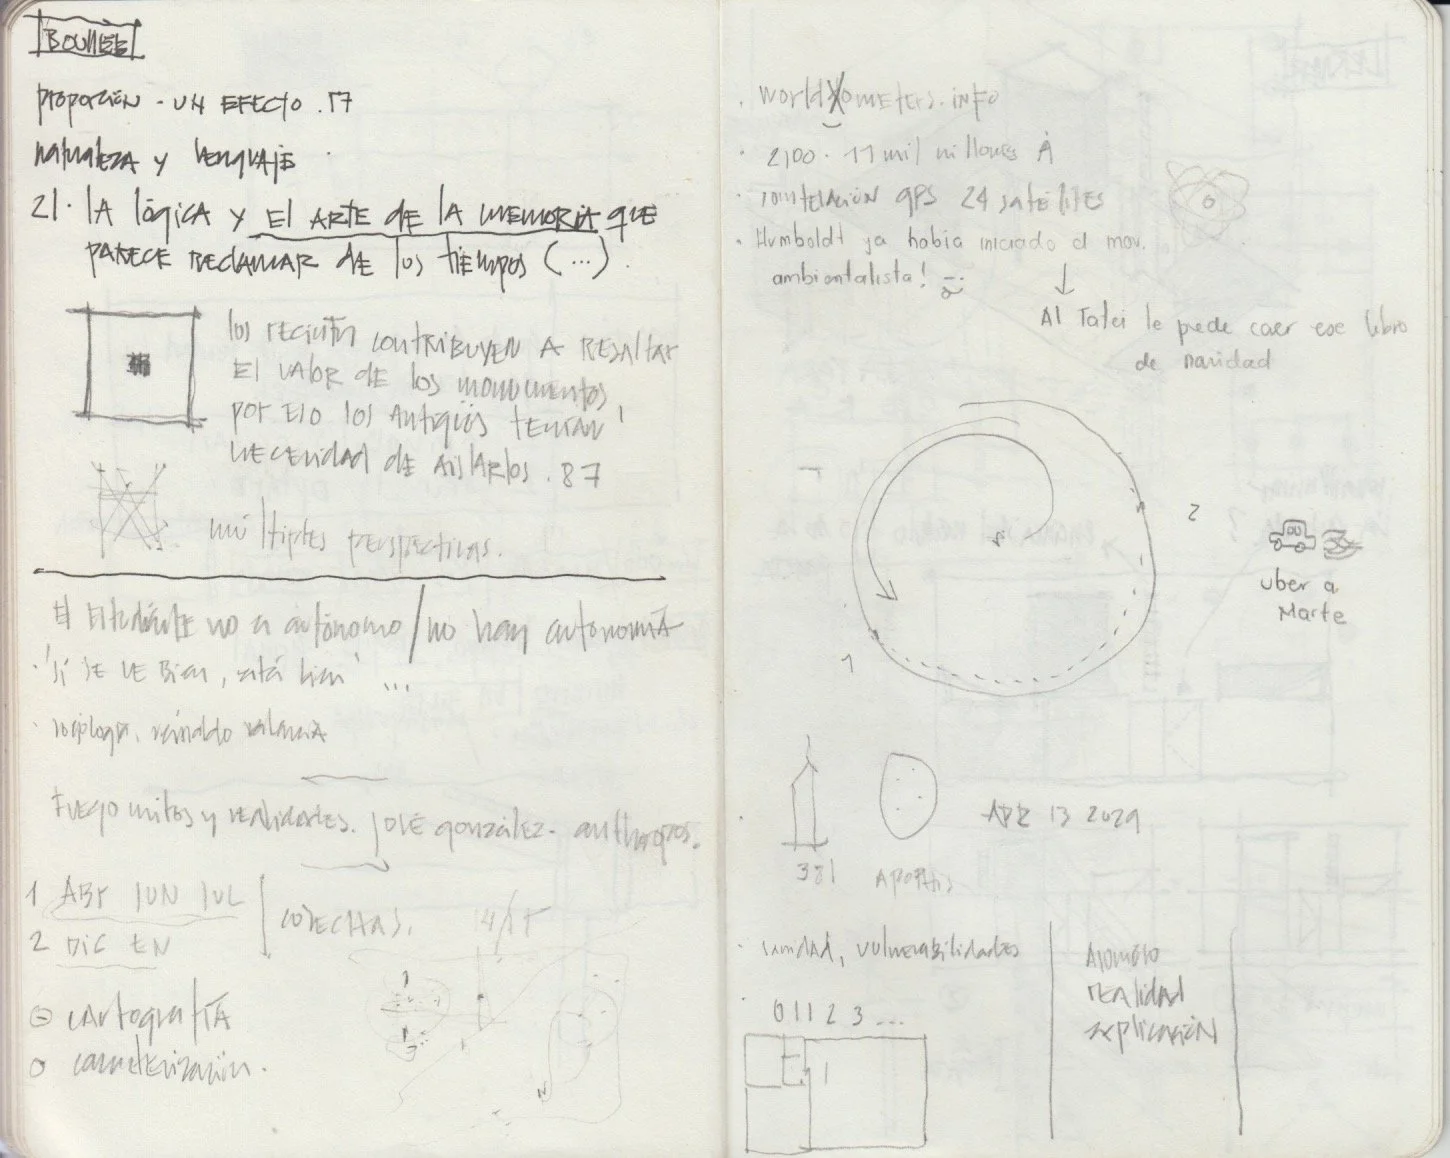 BOULLÉE
proporción - UN EFECTO . 17
naturaleza y lenguaje .
21. LA lógica y EL ARTE DE LA MEMORIA que
PARECE RECLAMAR DE los tiempos (...).
los recintos contribuyen A resaltar
El valor de los monumentos
por Ello los Antiguos tenían
necesidad de aislarlos . 87
múltiples perspectivas.
El Estudiante no es autónomo / no hay autonomía
. 'si se ve bien, está bien' ...
. sociología, reinaldo valencia
Fuego mitos y realidades. José gonzález - anthropos.
1 ABr JUN JUL
2 DIC EN
COSECHAS.
cartografía
caracterización.
. WorldXometers.info
. 2100 . 11 mil millones
. constelación gps 24 satélites
. Humboldt ya había iniciado el mov.
ambientalista!
Al Tatei le puede caer ese libro
de navidad
1
2
uber a
Marte
381
APOPHIS
APR 13 2029
. unidad, vulnerabilidades
Asombro
realidad
explicación
. 0 1 1 2 3 ...
1